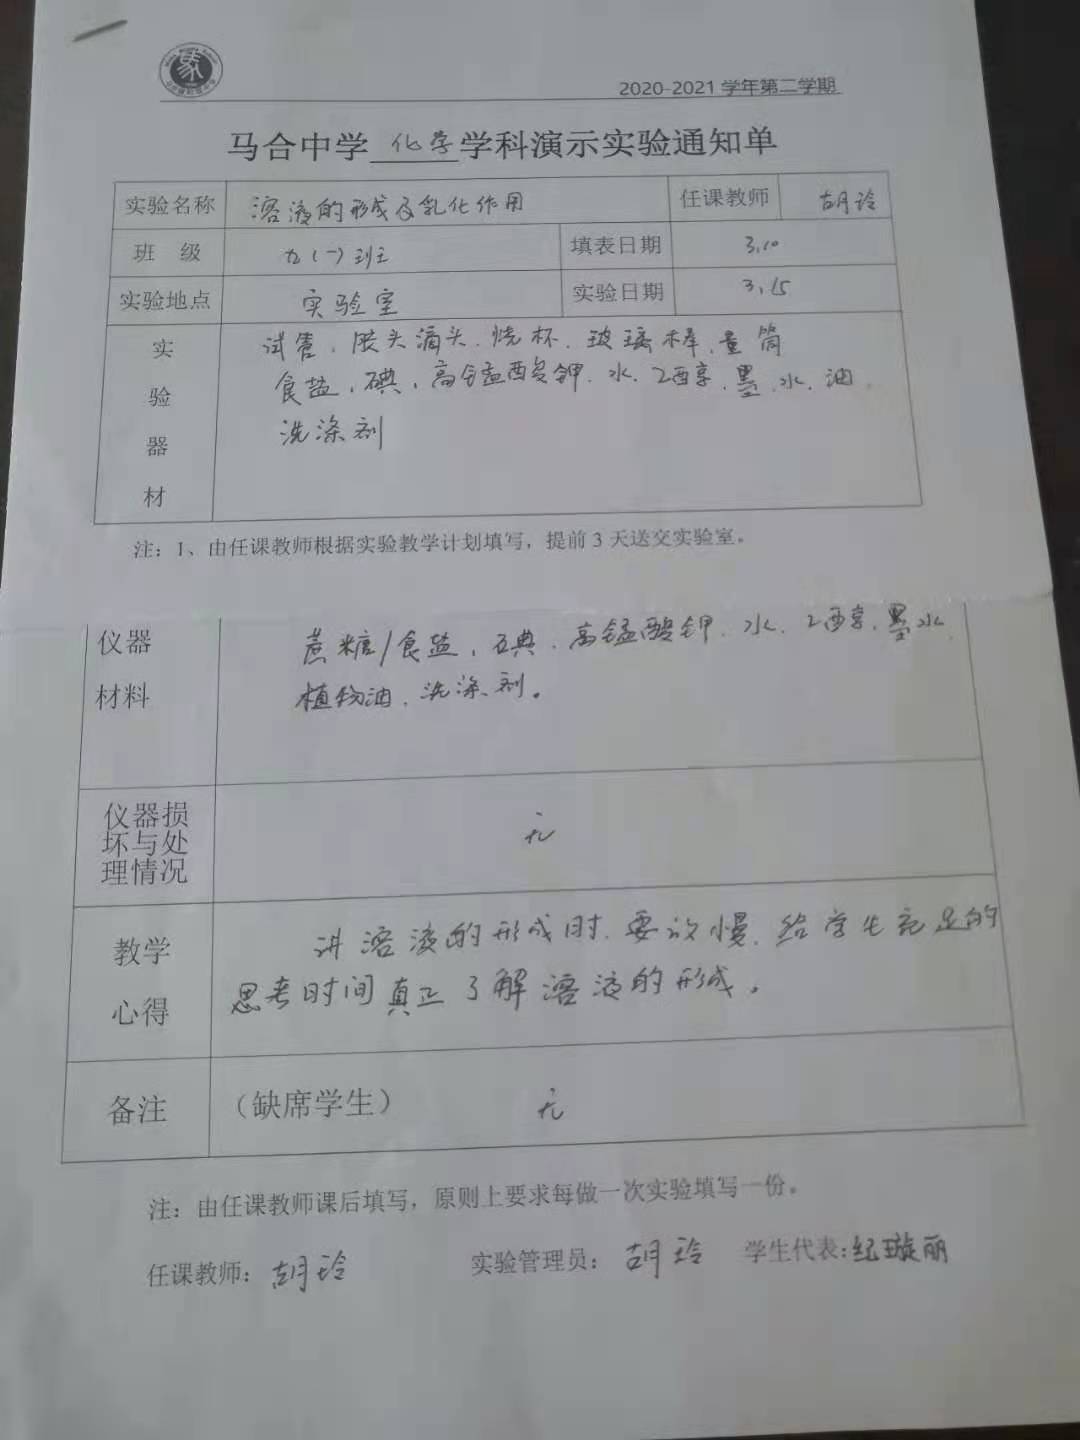 2020-2021 学年第二学期
马合中学 化学 学科演示实验通知单
实验名称 溶液的形成及乳化作用 任课教师 胡玲
班 级 九(一)班 填表日期 3.10
实验地点 实验室 实验日期 3.15
实验器材 试管、胶头滴头、烧杯、玻璃棒、量筒
食盐、碘、高锰酸钾、水、乙醇、墨水、油、
洗涤剂
注：1、由任课教师根据实验教学计划填写，提前 3 天送交实验室。
仪器 蔗糖/食盐、碘、高锰酸钾、水、乙醇、墨水、
材料 植物油、洗涤剂。
仪器损
坏与处 无
理情况
教学 讲溶液的形成时，要放慢，给学生充足的
心得 思考时间真正了解溶液的形成。
备注 （缺席学生） 无
注：由任课教师课后填写，原则上要求每做一次实验填写一份。
任课教师：胡玲 实验管理员：胡玲 学生代表:纪璇丽